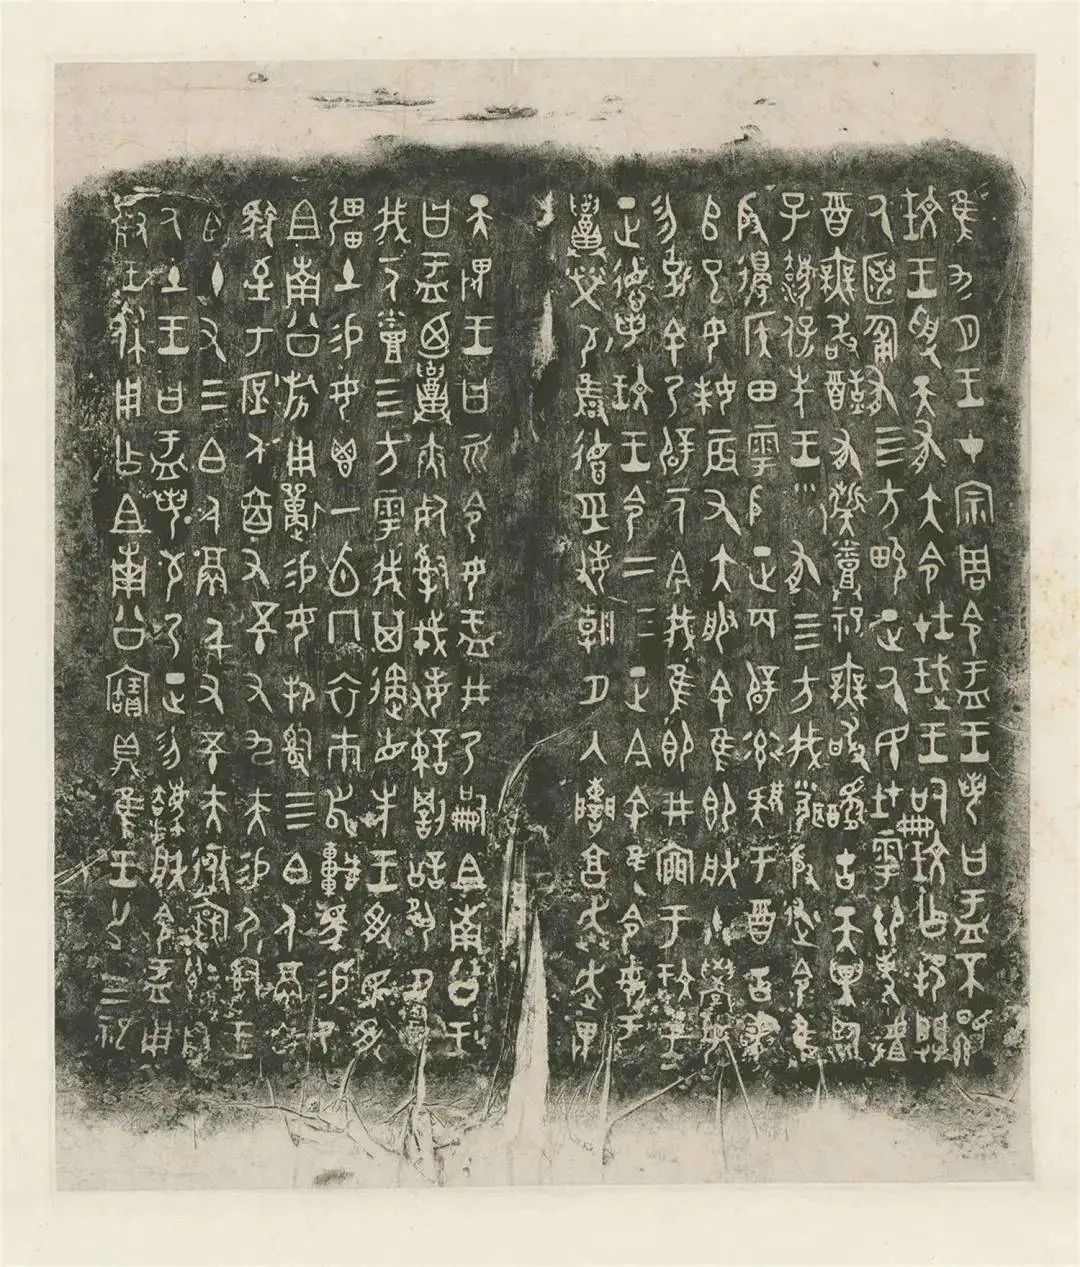 隹九月王才宗周令盂王若曰盂不顯
玟王受天有大令在珷王嗣玟乍邦闢
氒匿匍有四方畯正氒民在雩御事𠭯
酉無敢酖有祡蒸祀無敢醻古天異臨
子灋保先王有四方我聞殷述令隹
殷邊侯田雩殷正百辟率肄于酉古喪
𠂤巳女妹辰又大服余隹即朕小學女
勿𠩵余乃辟一人今我隹即井㐭于玟王
正德若玟王令二三正今余隹令女盂
召榮敬雝德巠敏朝夕入讕享奔走畏
天畏王曰而令女盂井乃嗣且南公王
曰盂迺召夾死司戎敏諫罰訟夙夕召
我一人烝四方雩我其遹省先王受民受
疆土易女鬯一卣冂衣巿舄車馬易乃
且南公旂用狩易女邦司四白人鬲自
馭至于庶人六百又五十又九夫易尸司王
臣十又三白人鬲千又五十夫遷自
氒土王曰盂若敬乃正勿灋朕令盂用
對王休用乍且南公寶鼎隹王廿又三祀